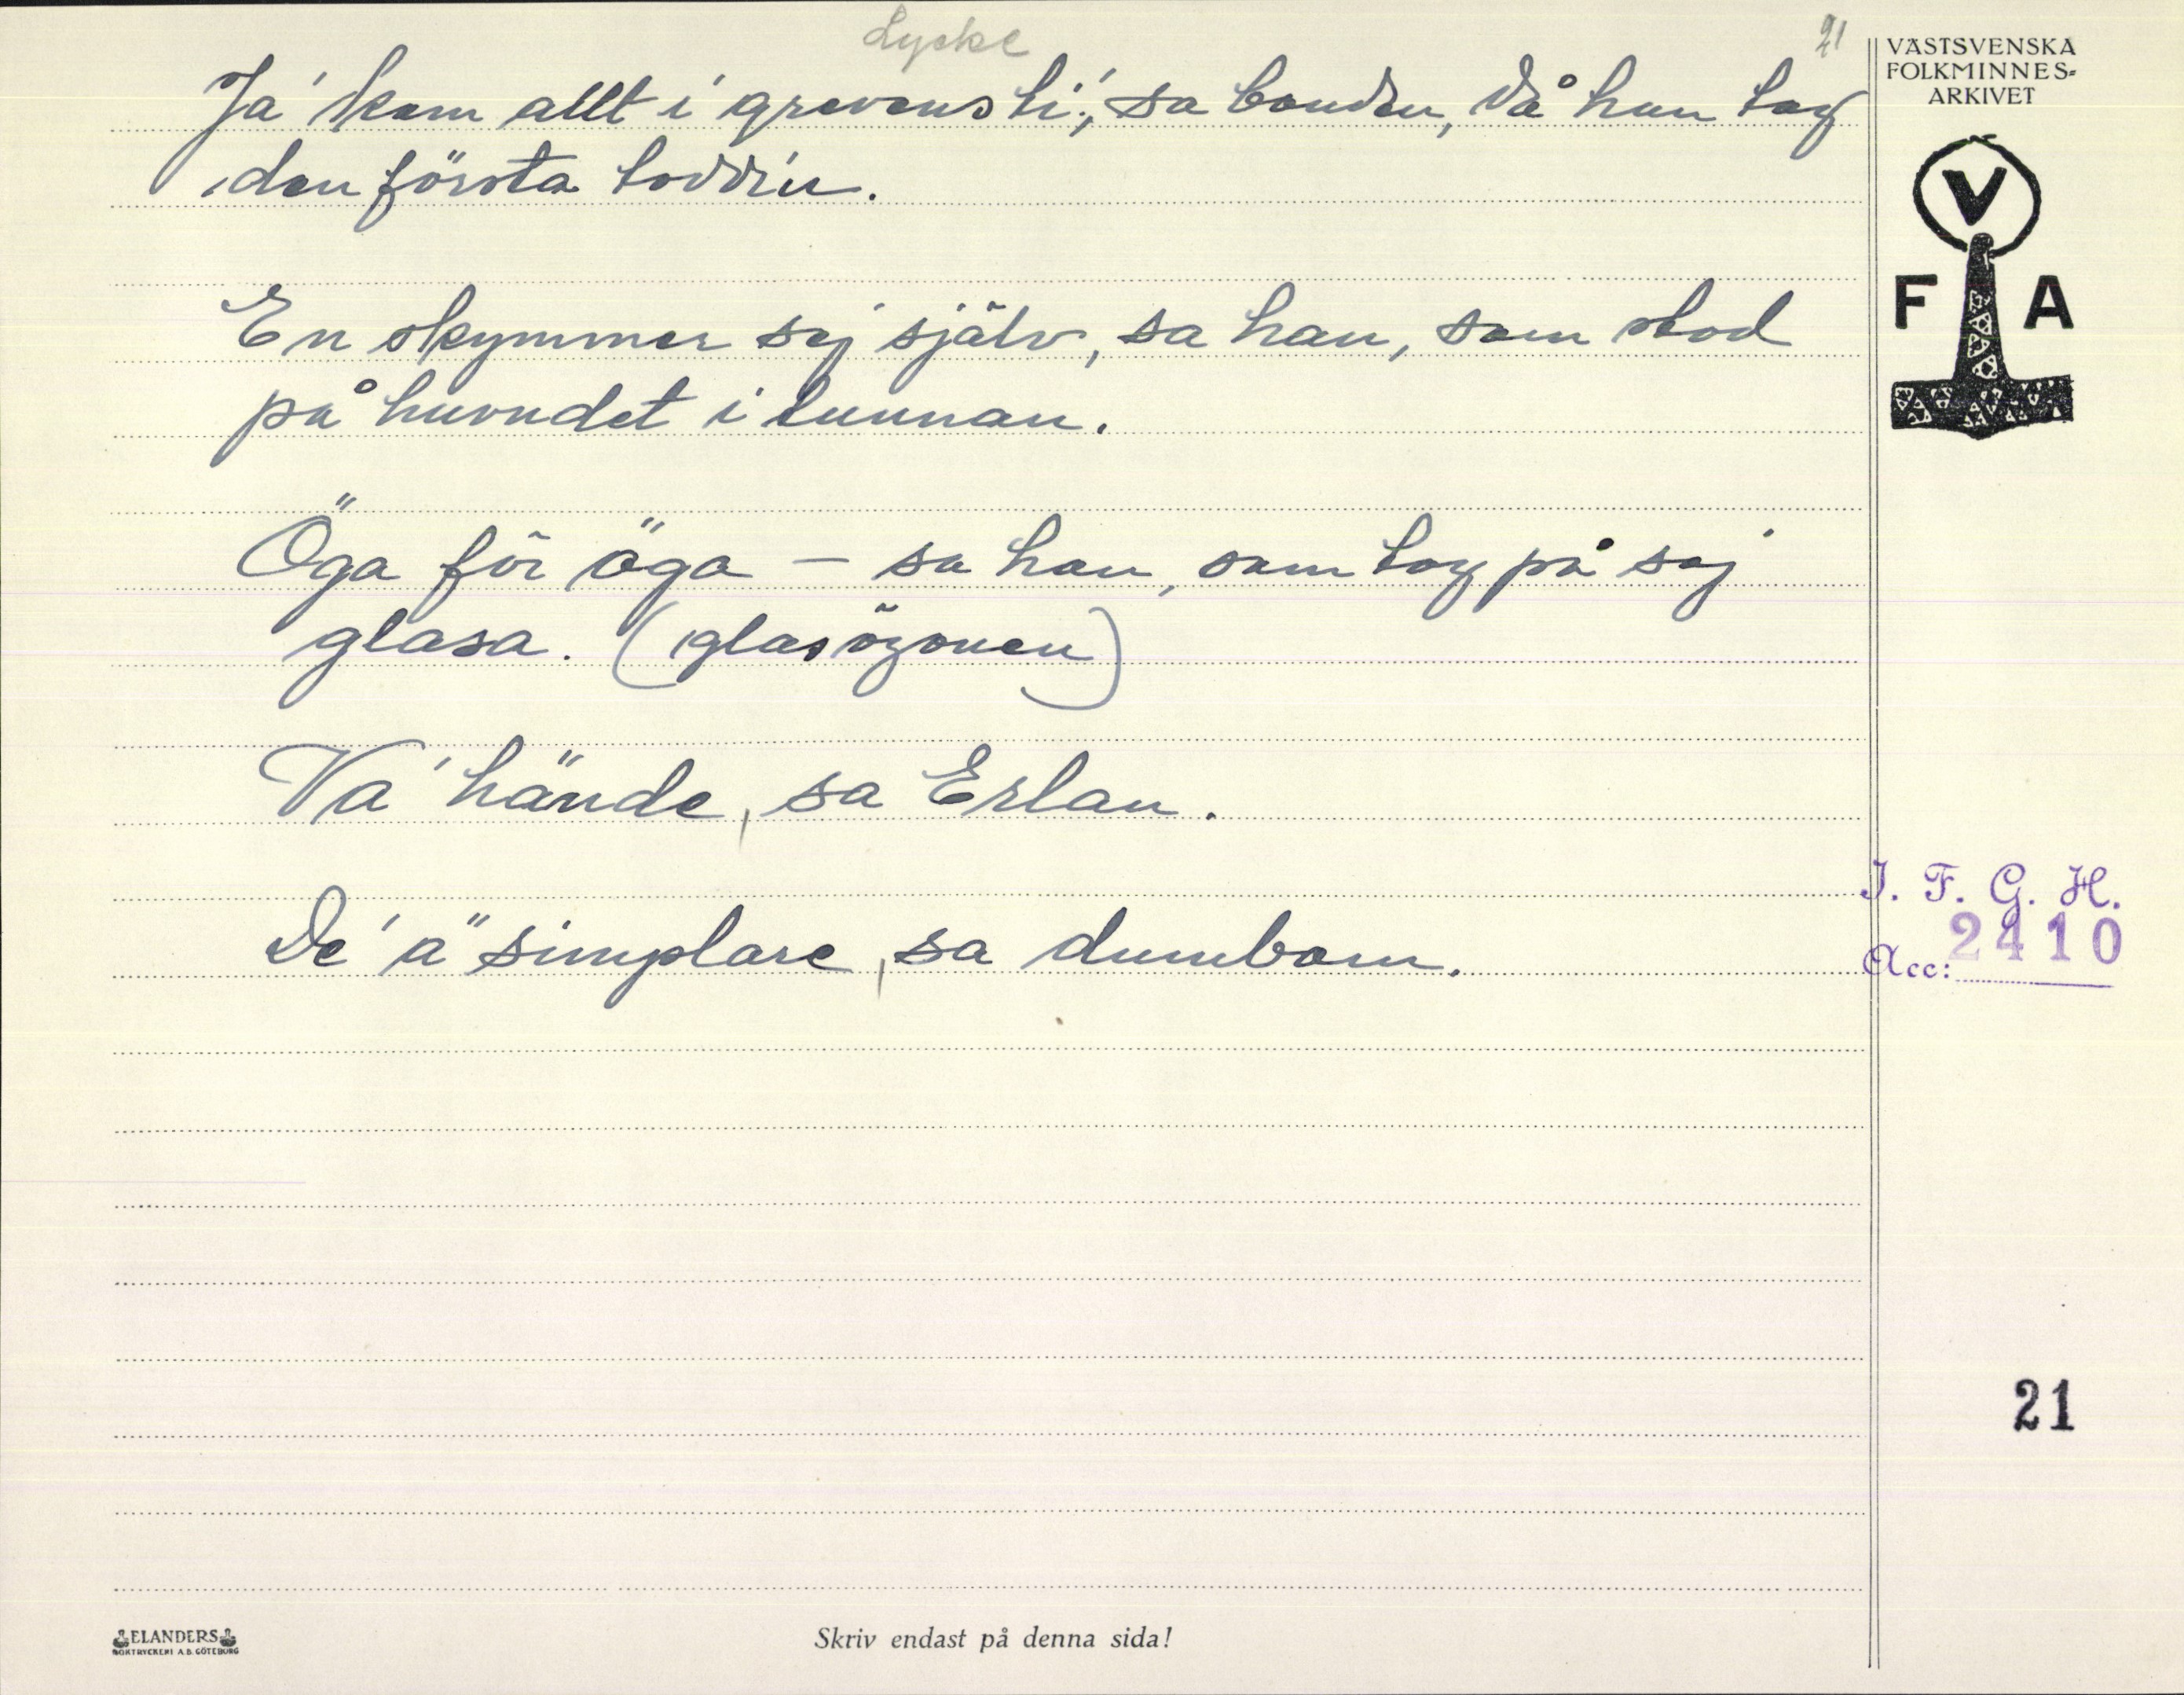 Lycke
21
Ja' kom allt i grevens ti', sa bonden, då han tog
den första toddin.
En skymmer sej själv, sa han, som stod
på huvudet i tunnan.
Öga för öga – sa han, som tog på sej
glasa. (glasögonen)
Va' hände, sa Erlan.
De' ä' simplare, sa dumbom.
VÄSTSVENSKA
FOLKMINNES-
ARKIVET
V
F A
I. F. G. H.
Acc: 2410
21
ELANDERS
BOKTRYCKERI A.B. GÖTEBORG
Skriv endast på denna sida!